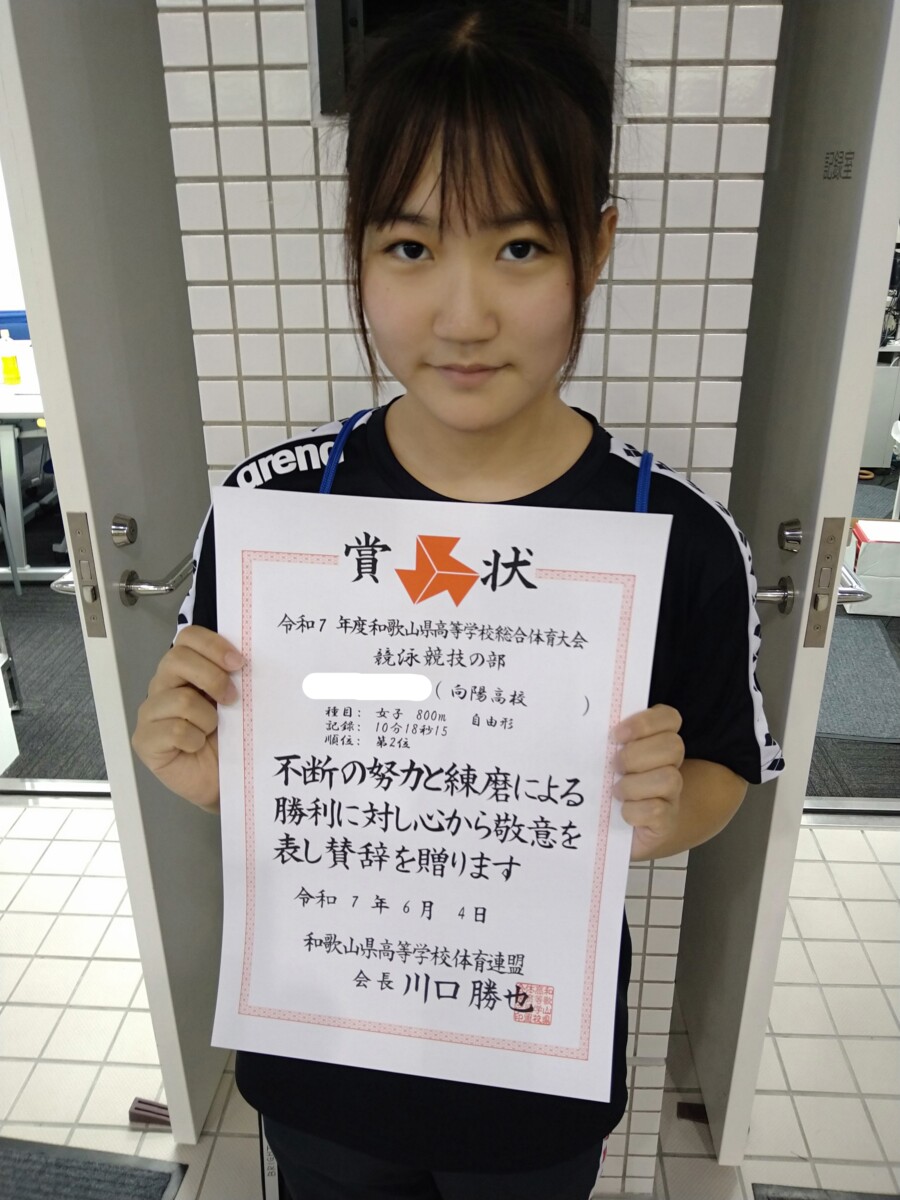 記録室
arena
賞 状
令和7 年度和歌山県高等学校総合体育大会
競泳競技の部
( 向陽高校 )
種目: 女子 800m 自由形
記録: 10分18秒15
順位: 第2位
不断の努力と練磨による
勝利に対し心から敬意を
表し賛辞を贈ります
令和 7 年 6月 4日
和歌山県高等学校体育連盟
会長 川口 勝也